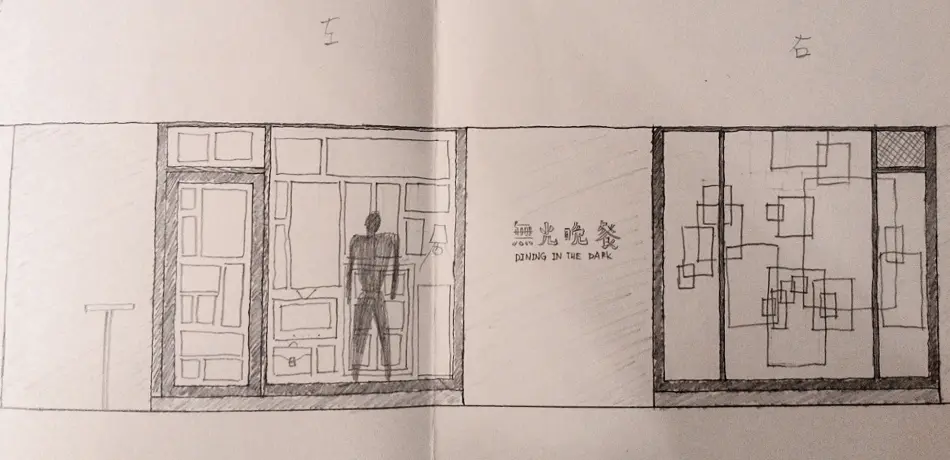 左
右
無光晚餐
DINING IN THE DARK